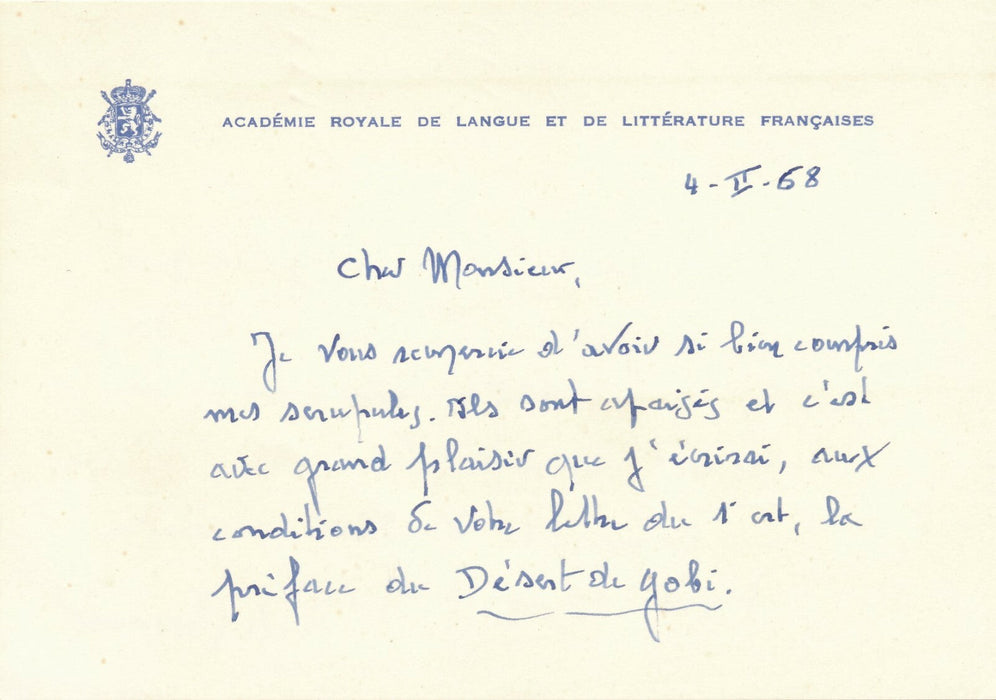 ACADÉMIE ROYALE DE LANGUE ET DE LITTÉRATURE FRANÇAISES
4-II-68
Cher Monsieur,
Je vous remercie d'avoir si bien compris
mes scrupules. Ils sont apaisés et c'est
avec grand plaisir que j'écrirai, aux
conditions de votre lettre du 1 crt, la
préface du Désert de Gobi.